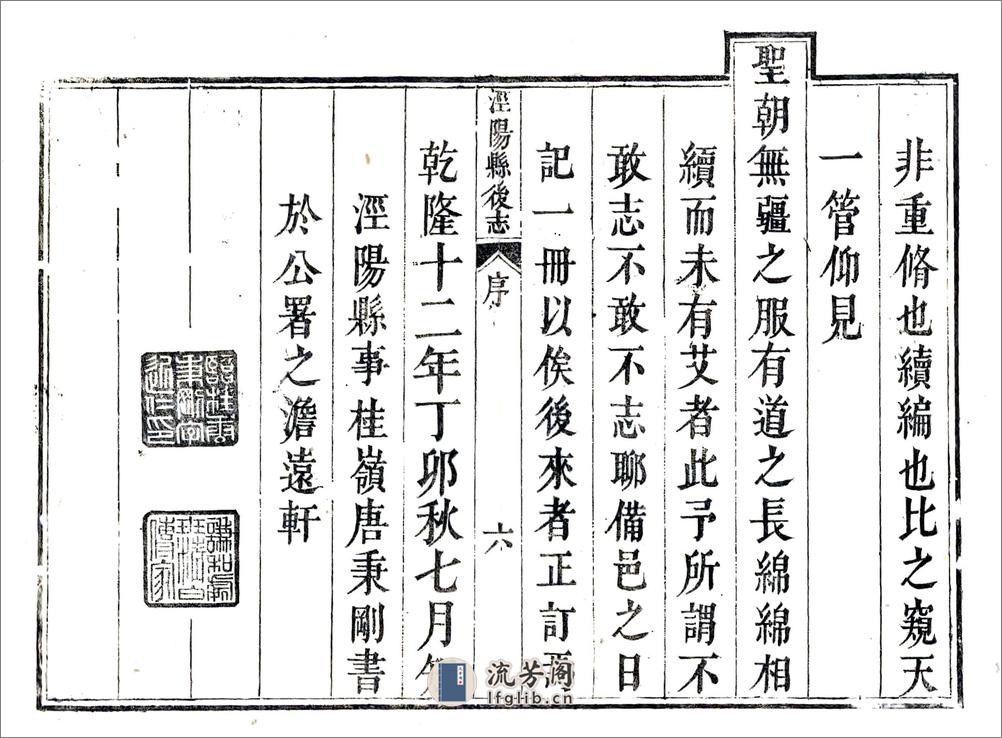 非重脩也續編也比之窺天
一管仰見
聖朝無疆之服有道之長綿綿相
續而未有艾者此予所謂不
敢志不敢不志聊備邑之日
記一冊以俟後來者正訂
涇陽縣後志
序
六
乾隆十二年丁卯秋七月
涇陽縣事桂嶺唐秉剛書
於公署之澹遠軒
流芳阁
lfglib.cn